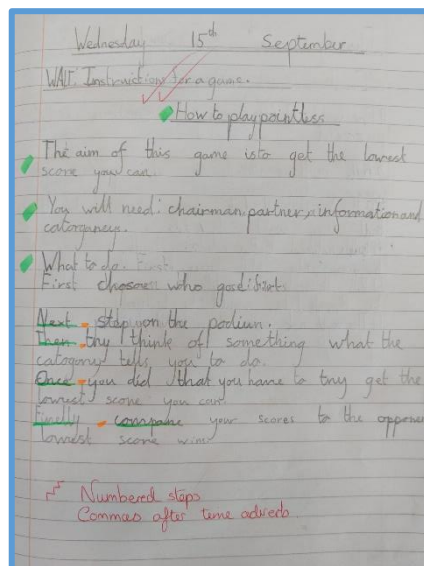 Wednesday 15th September
WALT: Instructions for a game.
How to play pointless
The aim of this game is to get the lowest
score you can.
You will need: chairman, partner, information and
catorgancy.
What to do. First
First choose who goes first.
Next - step on the podium.
Then - try think of something what the
catogory tells you to do.
Once - you did that you have to try get the
lowest score you can
Finally - compare your scores to the
lowest score win
Numbered steps
Commas after time adverb